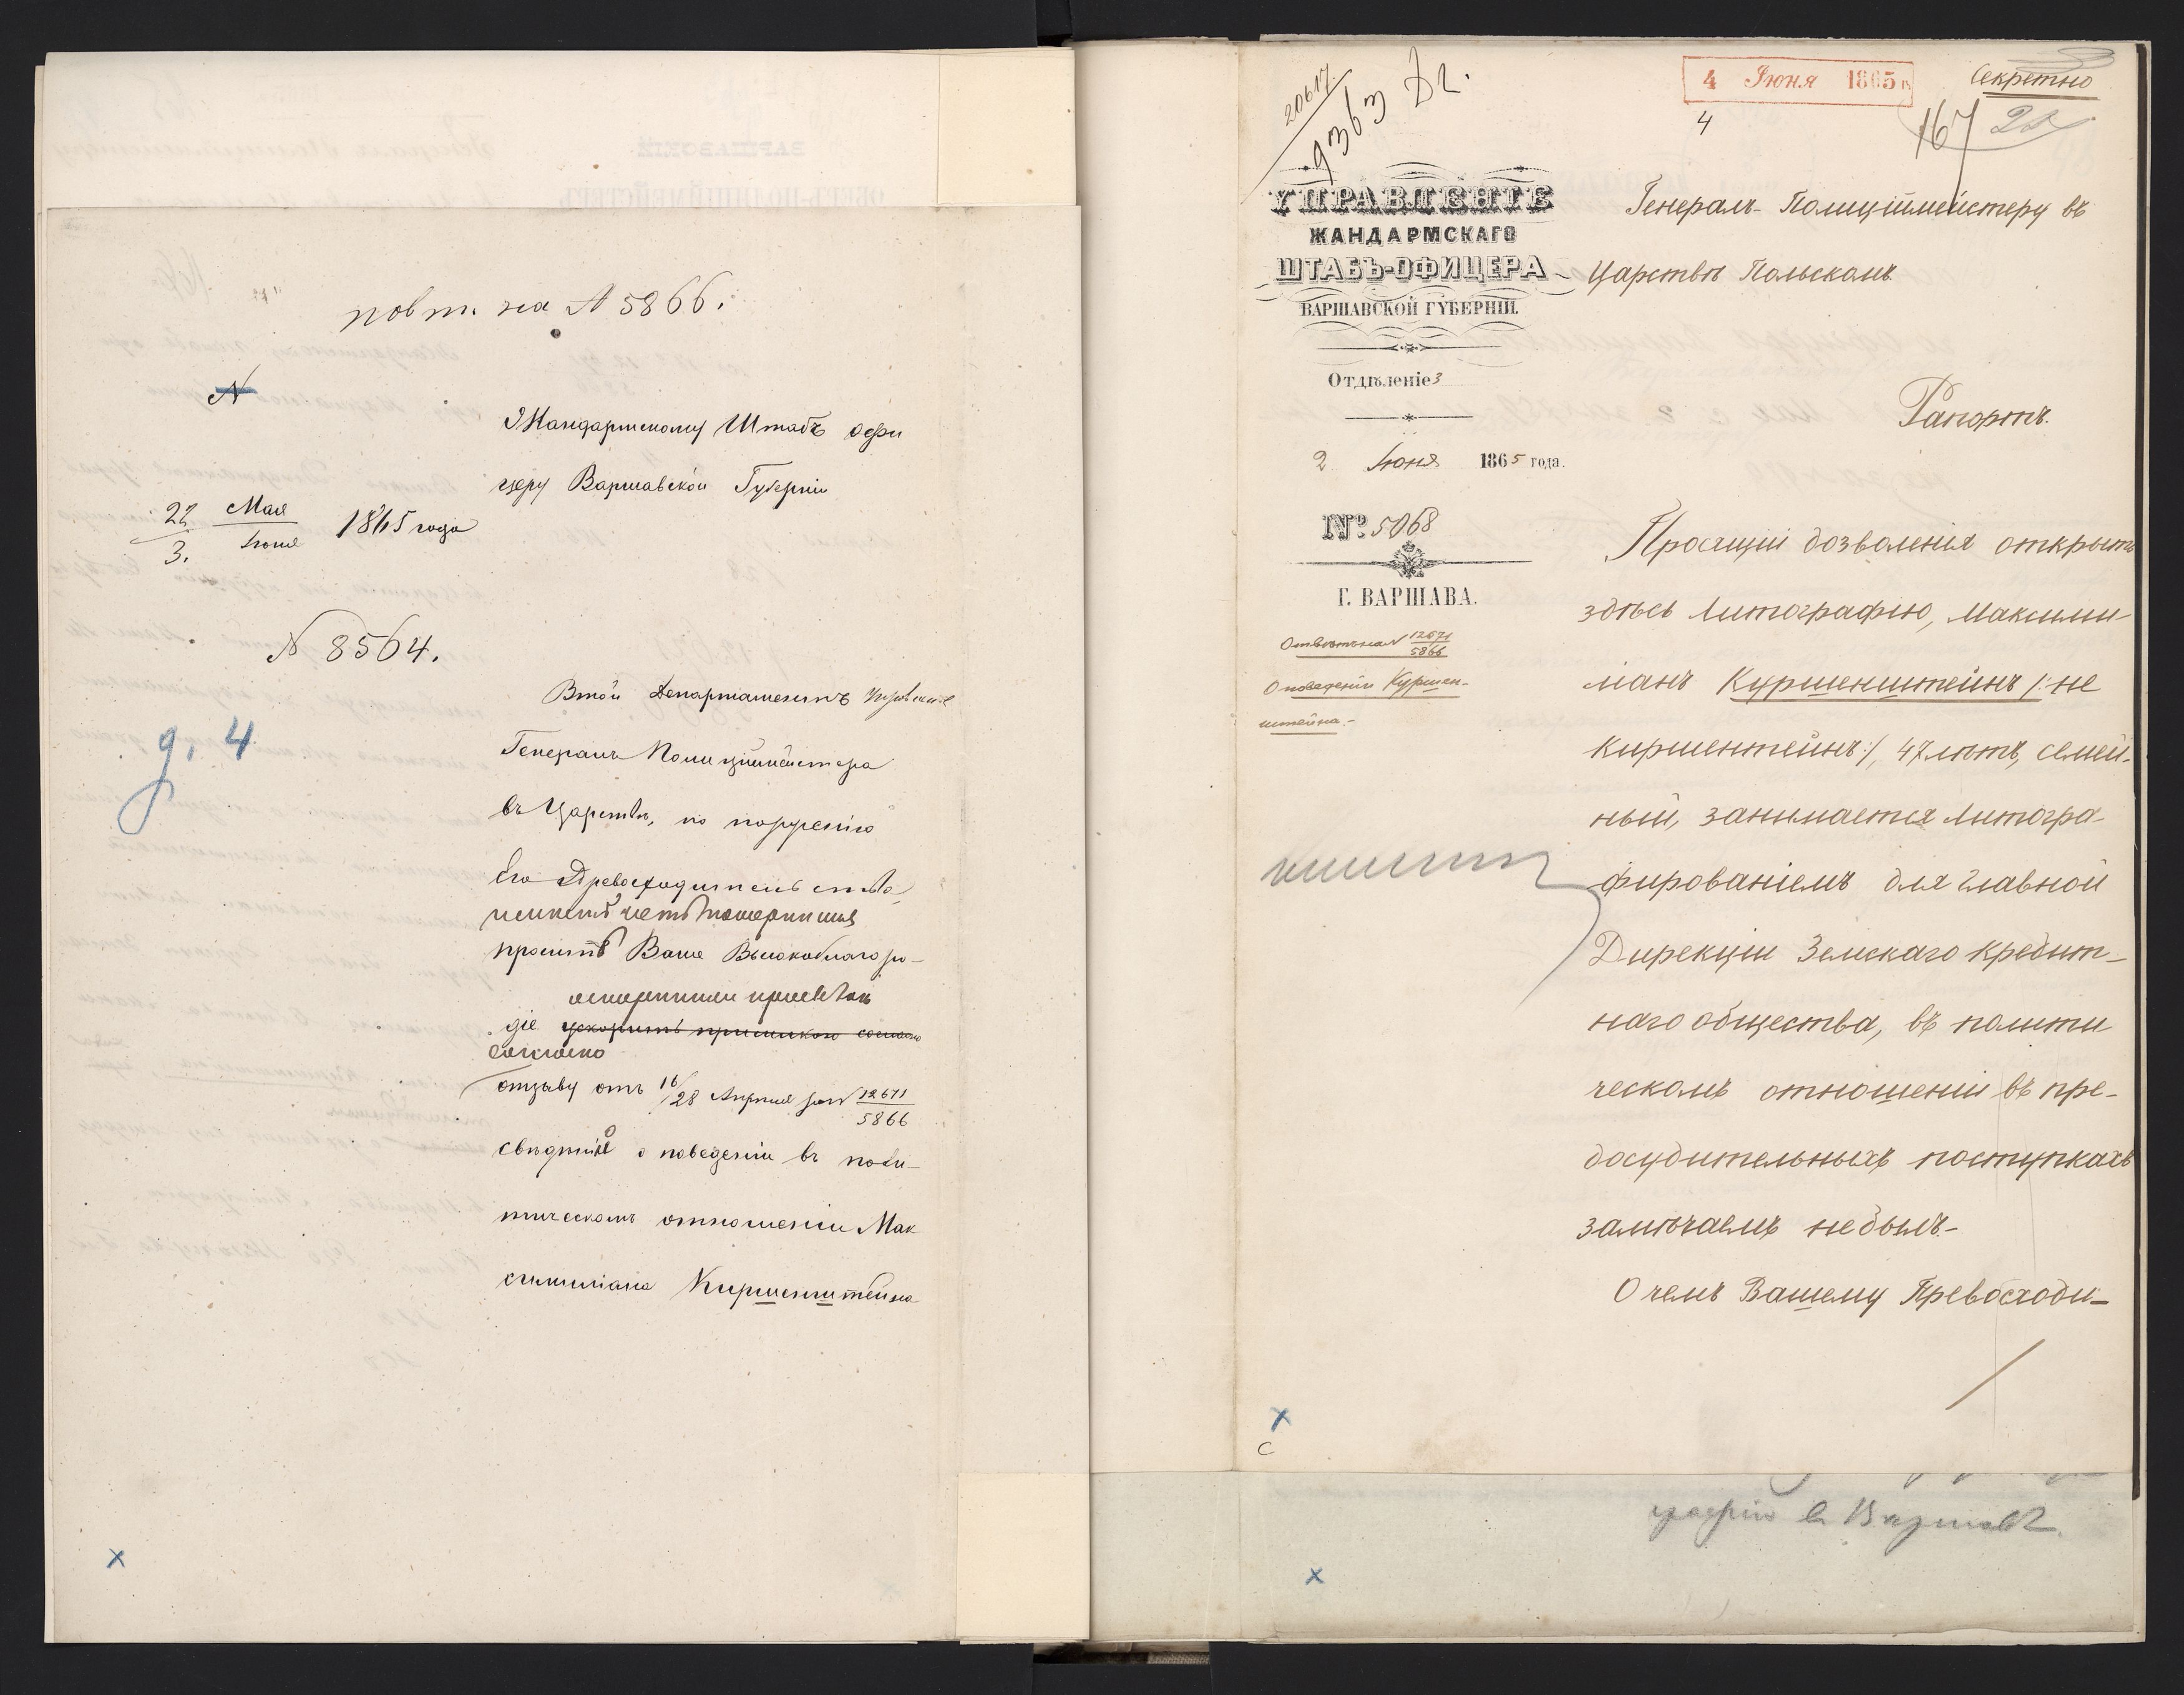 повт. на № 5866.
№
Жандармскому Штабъ офи
церу Варшавской Губерніи
22 Мая
3. Іюня
1865 года
№ 8564.
д. 4
Втой Департаментъ Управленія
Генералъ Полиціймейстера
въ Царствѣ, по порученію
Его Превосходительства,
проситъ Ваше Высокоблагоро-
діе ускорить присылкою
согласно
отзыву отъ 16/28 Апрѣля за № 12671/5866
свѣдѣній о поведеніи въ поли-
тическомъ отношеніи Мак
симиліана Киршенштейна
х
20617
9363
4 Іюня 1865 г.
Секретно
4
167
УПРАВЛЕНІЕ
ЖАНДАРМСКАГО
ШТАБЪ-ОФИЦЕРА
ВАРШАВСКОЙ ГУБЕРНІИ.
Отдѣленіе 3
2 Іюня 1865 года.
№ 5068
Г. ВАРШАВА.
Отвѣтъ на № 12671/5866
О поведеніи Куршен-
штейна.-
Генералъ-Полиціймейстеру въ
Царствѣ Польскомъ.
Рапортъ.
Просящій дозволенія открыть
здѣсь Литографію, Максими-
ліанъ Куршенштейнъ /:не
Киршентейнъ:/, 47 лѣтъ, семей-
ный, занимается литогра-
фированіемъ для Главной
Дирекціи Земскаго Кредит-
наго общества, въ полити
ческомъ отношеніи въ пре-
досудительныхъ поступкахъ
замѣчаемъ не былъ.-
О чемъ Вашему Превосходи-
х
с
графіи въ Варшавѣ.
х